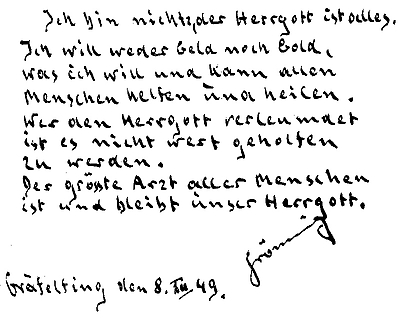 Ich bin nichts, der Herrgott ist alles.
Ich will weder Geld noch Gold,
was ich will und kann allen
Menschen helfen und heilen.
Wer den Herrgott verleumdet
ist es nicht wert geholfen
zu werden.
Der grösste Arzt aller Menschen
ist und bleibt unser Herrgott.
Gröning
Gräfelfing den 8. XII. 49.